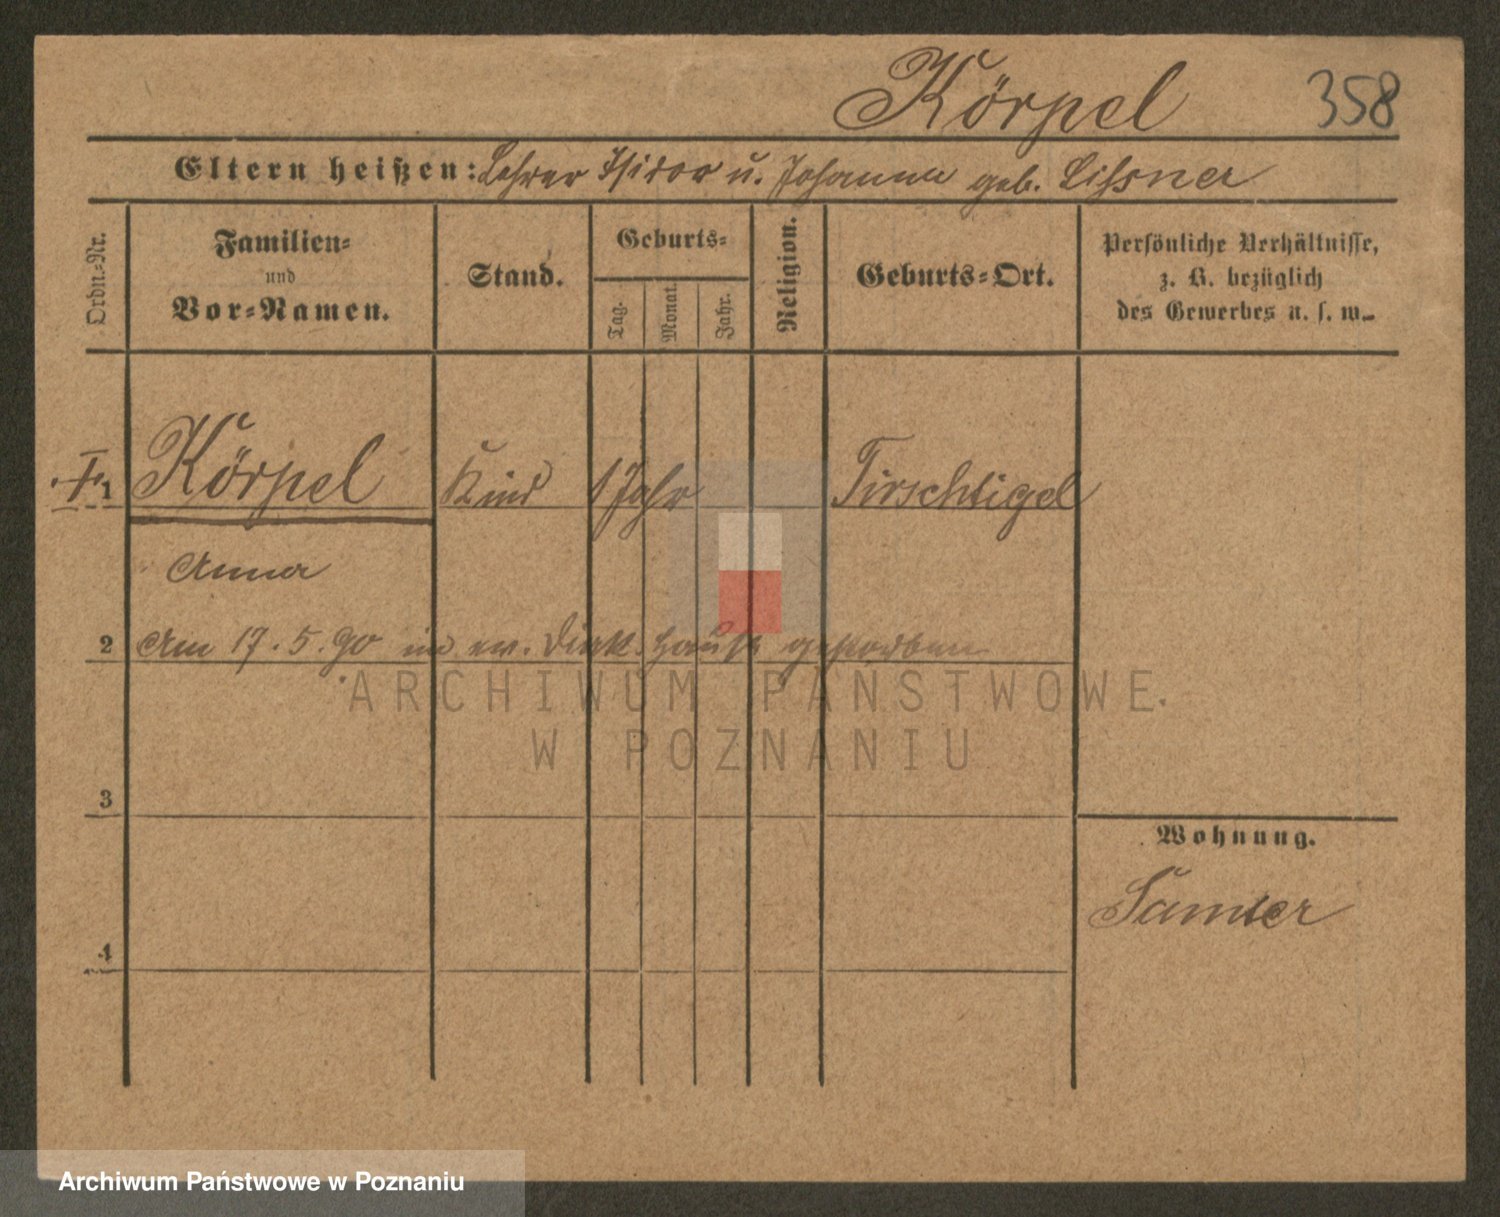 Körpel 358
Eltern heißen: Lehrer Isidor u. Johanna geb. Lissner
Ordn.=Nr. Familien= und Vor=Namen. Stand. Geburts= Tag. Monat. Jahr. Religion. Geburts=Ort. Persönliche Verhältnisse, z. B. bezüglich des Gewerbes u. s. w.
1 Körpel Kind 1 Jahr Tirschtigel
Anna
2 Am 17. 5. 90 im ev. Diak. Hause gestorben
ARCHIWUM PAŃSTWOWE
W POZNANIU
3
Wohnung.
Samter
4
Archiwum Państwowe w Poznaniu